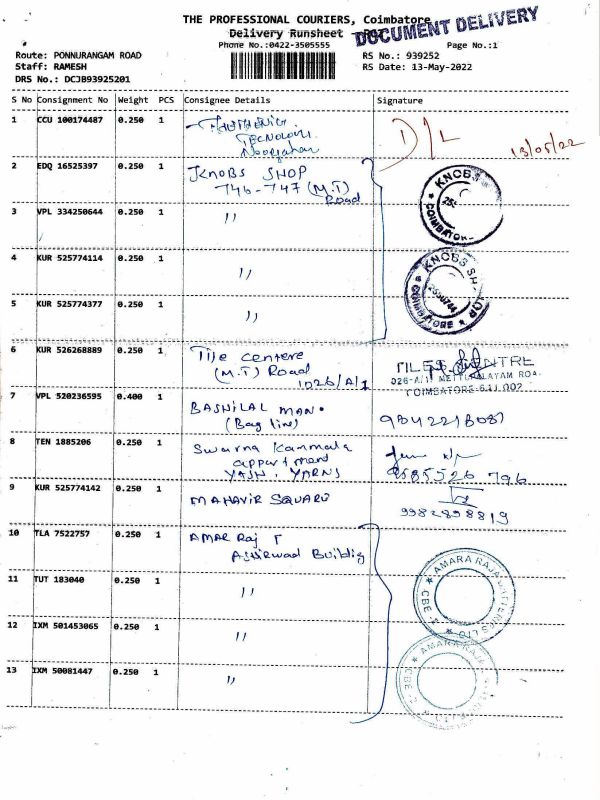 THE PROFESSIONAL COURIERS, Coimbatore
Delivery Runsheet
DOCUMENT DELIVERY
Phone No.:0422-3505555
Page No.:1
Route: PONNURANGAM ROAD
RS No.: 939252
Staff: RAMESH
RS Date: 13-May-2022
DRS No.: DCJB93925201
S No Consignment No Weight PCS Consignee Details Signature
1 CCU 100174487 0.250 1
D/L 13/05/22
2 EDQ 16525397 0.250 1 KNOBS SHOP
746-747 (M.T)
Road
KNOBS
COIMBATORE
3 VPL 334250644 0.250 1 11
4 KUR 525774114 0.250 1 11
KNOBS SHOP
COIMBATORE
5 KUR 525774377 0.250 1 11
6 KUR 526268889 0.250 1 Tile Centere
(M.T) Road
1026/A/1
TILES CENTRE
026-A/1 METTUPALAYAM ROA
COIMBATORE-641 002
7 VPL 520236595 0.400 1 BASHILAL MAN.
(Bag line)
8 TEN 1885206 0.250 1 Swarna Kammala
appartment
YASH. YARNS
9585526 796
9 KUR 525774142 0.250 1 MAHAVIR SQUARE
9982898819
10 TLA 7522757 0.250 1 AMAR Raj
AMARA RAJA BATTERIES LTD
CBE
11 TUT 183040 0.250 1 11
12 IXM 501453065 0.250 1 11
AMARA RAJA
CBE
13 IXM 50081447 0.250 1 11